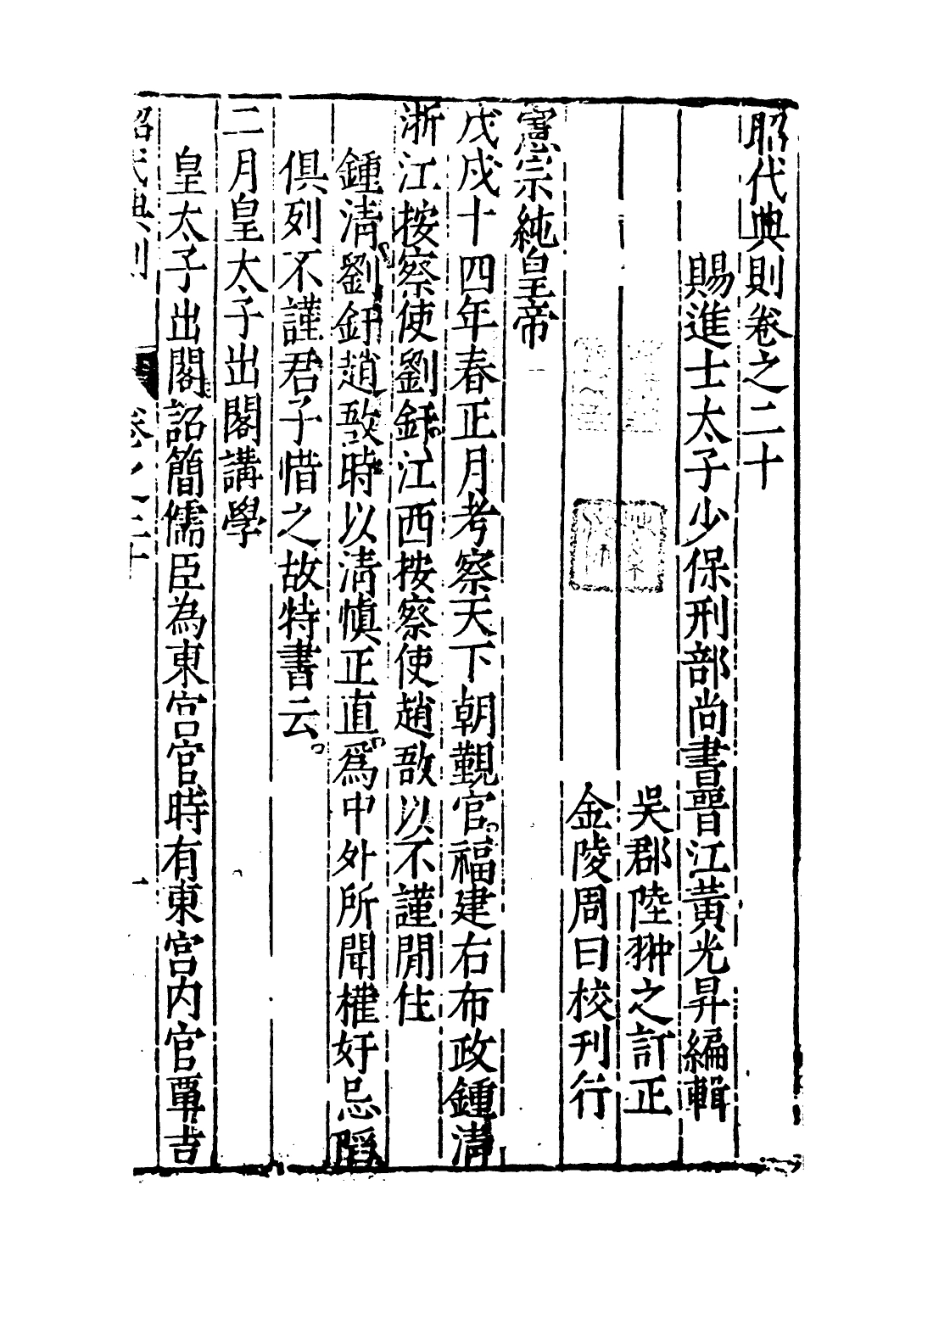 昭代典則卷之二十
賜進士太子少保刑部尚書晉江黃光昇編輯
吳郡陸翀之訂正
金陵周曰校刊行
憲宗純皇帝
戊戌十四年春正月考察天下朝覲官。福建右布政鍾清
浙江按察使劉釪江西按察使趙敔以不謹閒住
鍾清劉釪趙敔時以清慎正直爲中外所聞權奸忌
俱列不謹君子惜之故特書云。
二月皇太子出閣講學
皇太子出閣詔簡儒臣為東宮官時有東宮內官覃吉
昭代典則
卷之二十
一